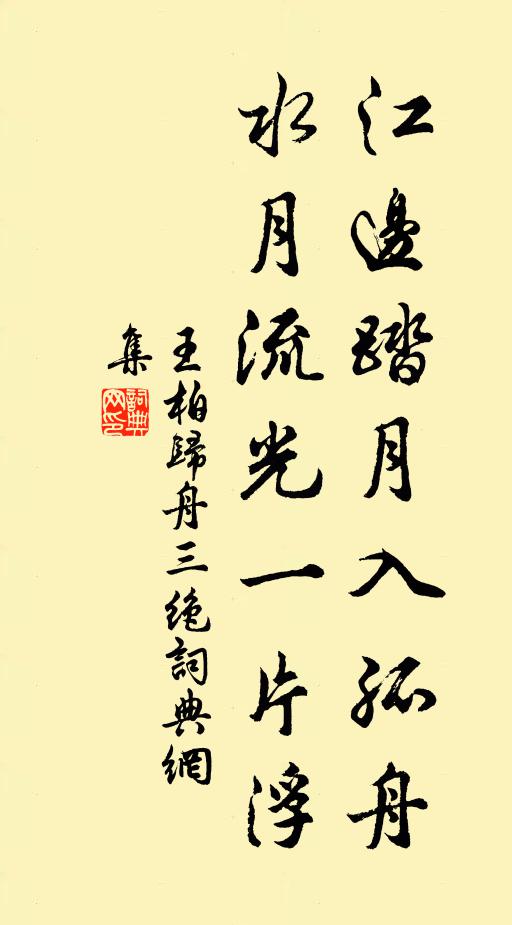 江邊踏月入孤舟
水月流光一片浮
王柏歸舟三绝詞典網
集
詞典
网印